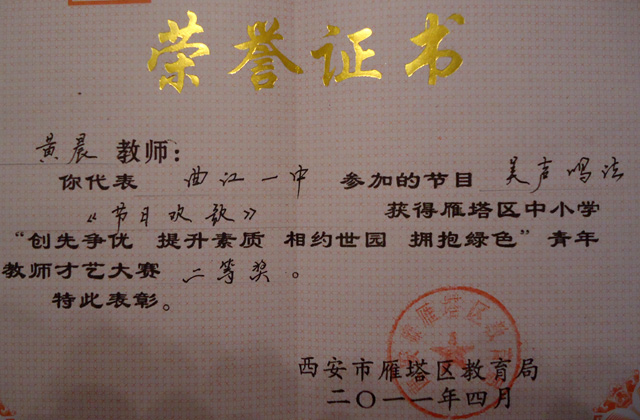 荣誉证书
黄晨 教师：
你代表 曲江一中 参加的节目 美声唱法
《节日欢歌》 获得雁塔区中小学
“创先争优 提升素质 相约世园 拥抱绿色”青年
教师才艺大赛 二等奖 。
特此表彰。
西安市雁塔区教育局
二〇一一年四月